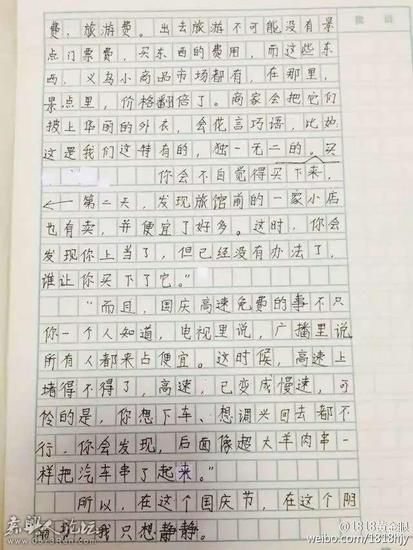 费，旅游费。出去旅游不可能没有景
点门票费，买东西的费用，而这些东
西，义乌小商品市场都有，在那里，
景点里，价格翻倍了。商家会把它们
披上华丽的外衣，会花言巧语，比如：
这是我们这特有的，独一无二的。买
你会不自觉得买下来，
第二天，发现旅馆前的一家小店
也有卖，并便宜了好多。这时，你会
发现你上当了，但已经没有办法了，
谁让你买下了它。”
“而且，国庆高速免费的事不只
你一个人知道，电视里说，广播里说
所有人都来占便宜。这时候，高速上
堵得不得了，高速，已变成慢速，可
怜的是，你想下车、想调头回去都不
行，你会发现，后面像超大羊肉串一
样把汽车串了起来。”
所以，在这个国庆节，在这个阴
我只想静静。
@1818黄金眼
weibo.com/1818hjy